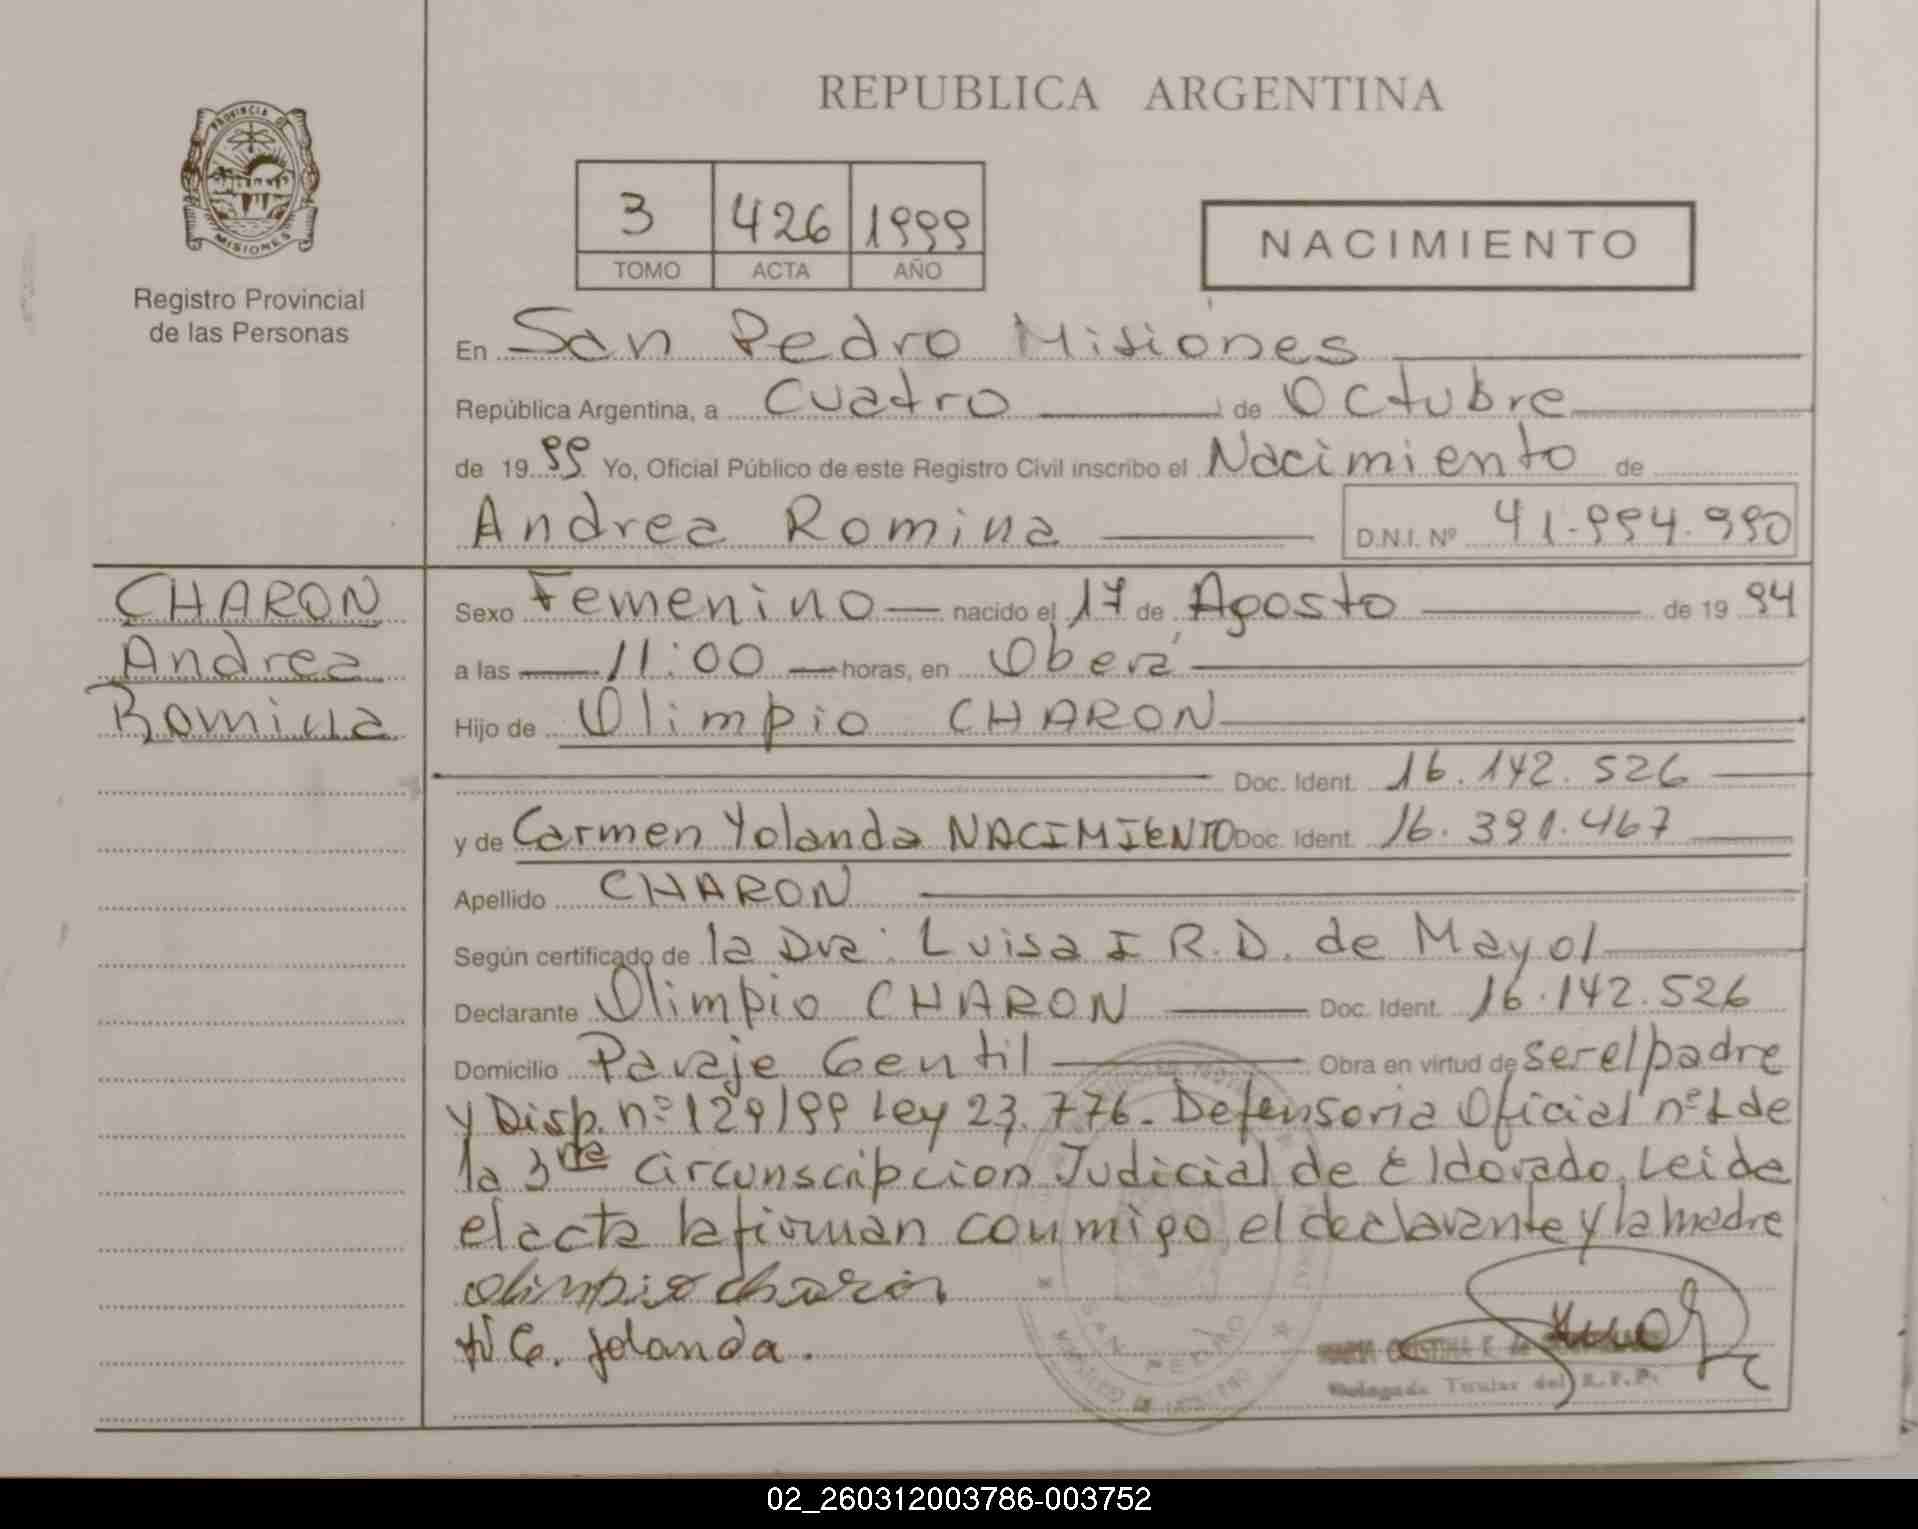 PROVINCIA DE
MISIONES
Registro Provincial
de las Personas
REPUBLICA ARGENTINA
3 426 1999
TOMO ACTA AÑO
NACIMIENTO
En San Pedro Misiones
República Argentina, a Cuatro de Octubre
de 1999 Yo, Oficial Público de este Registro Civil inscribo el Nacimiento de
Andrea Romina D.N.I. Nº 41.994.990
CHARON
Andrea
Romina
Sexo Femenino nacido el 17 de Agosto de 1994
a las 11:00 horas, en Oberá
Hijo de Olimpio CHARON
Doc. Ident. 16.142.526
y de Carmen Yolanda NACIMIENTO Doc. Ident. 16.391.467
Apellido CHARON
Según certificado de la Dra: Luisa I R.D. de Mayol
Declarante Olimpio CHARON Doc. Ident. 16.142.526
Domicilio Paraje Gentil Obra en virtud de ser el padre
y Disp. nº 129/99 Ley 23.776. Defensoria Oficial nº 1 de
la 3ra Circunscripcion Judicial de Eldorado. Leida
el acta la firman conmigo el declarante y la madre
olimpio charon
N C. jolanda.
SAN PEDRO
MINISTERIO DE GOBIERNO
Delegada Titular del R.P.P.
02_260312003786-003752